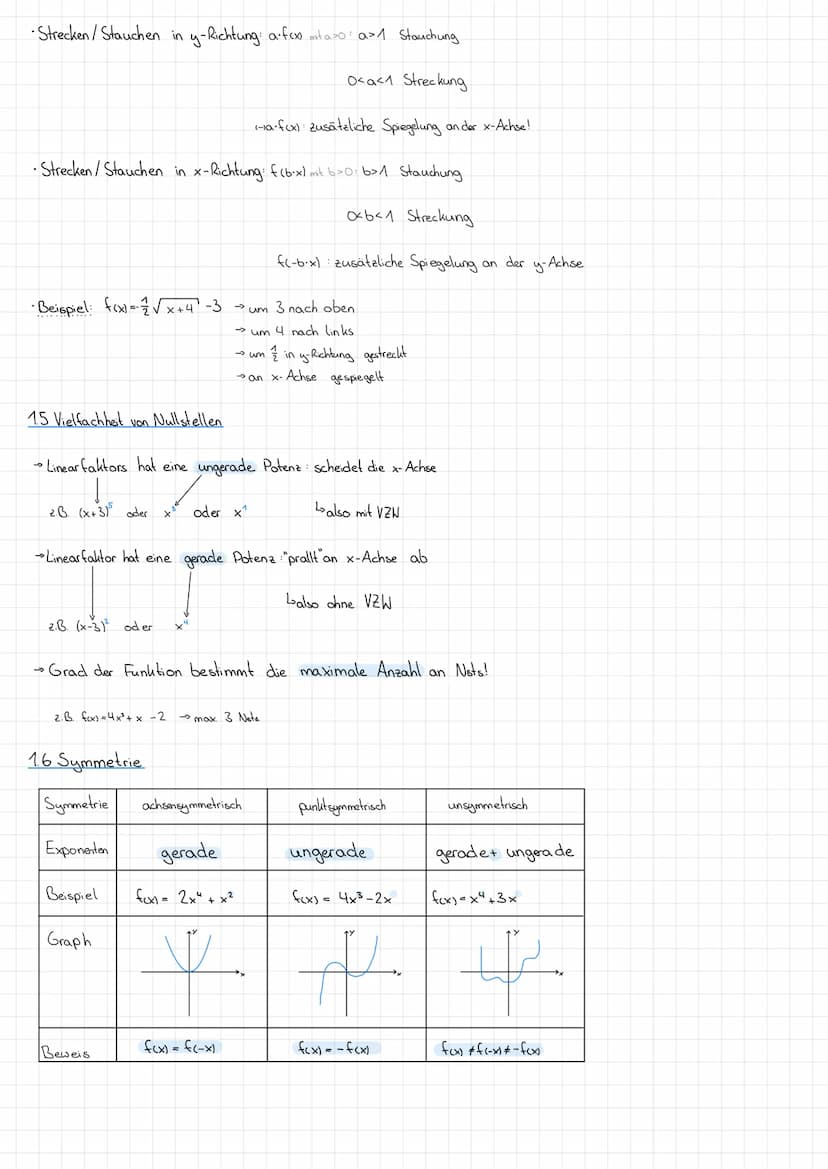 · Strecken/Stauchen in y-Richtung: a·f(x) mit a>0: a>1 Stauchung
0<a<1 Streckung
(-)a·f(x): zusätzliche Spiegelung an der x-Achse!
· Strecken/Stauchen in x-Richtung: f(b·x) mit b>0: b>1 Stauchung
0<b<1 Streckung
f(-b·x): zusätzliche Spiegelung an der y-Achse
· Beispiel: f(x)=-½√(x+4) -3 → um 3 nach oben
→ um 4 nach links
→ um ½ in y-Richtung gestreckt
→ an x-Achse gespiegelt
1.5 Vielfachheit von Nullstellen
→ Linearfaktors hat eine ungerade Potenz: scheidet die x-Achse
z.B. (x+3)⁵ oder x³ oder x¹ ↳ also mit VZW
→ Linearfaktor hat eine gerade Potenz: "prallt" an x-Achse ab
↳ also ohne VZW
z.B. (x-3)² oder x⁴
→ Grad der Funktion bestimmt die maximale Anzahl an Nsts!
z.B. f(x)=4x³+x-2 → max. 3 Nsts
1.6 Symmetrie
Symmetrie achsensymmetrisch punktsymmetrisch unsymmetrisch
Exponenten gerade ungerade gerade+ ungerade
Beispiel f(x)= 2x⁴ + x² f(x)= 4x³-2x f(x)=x⁴+3x
Graph y x y x y x
Beweis f(x) = f(-x) f(x) = -f(x) f(x) ≠ f(-x) ≠ -f(x)